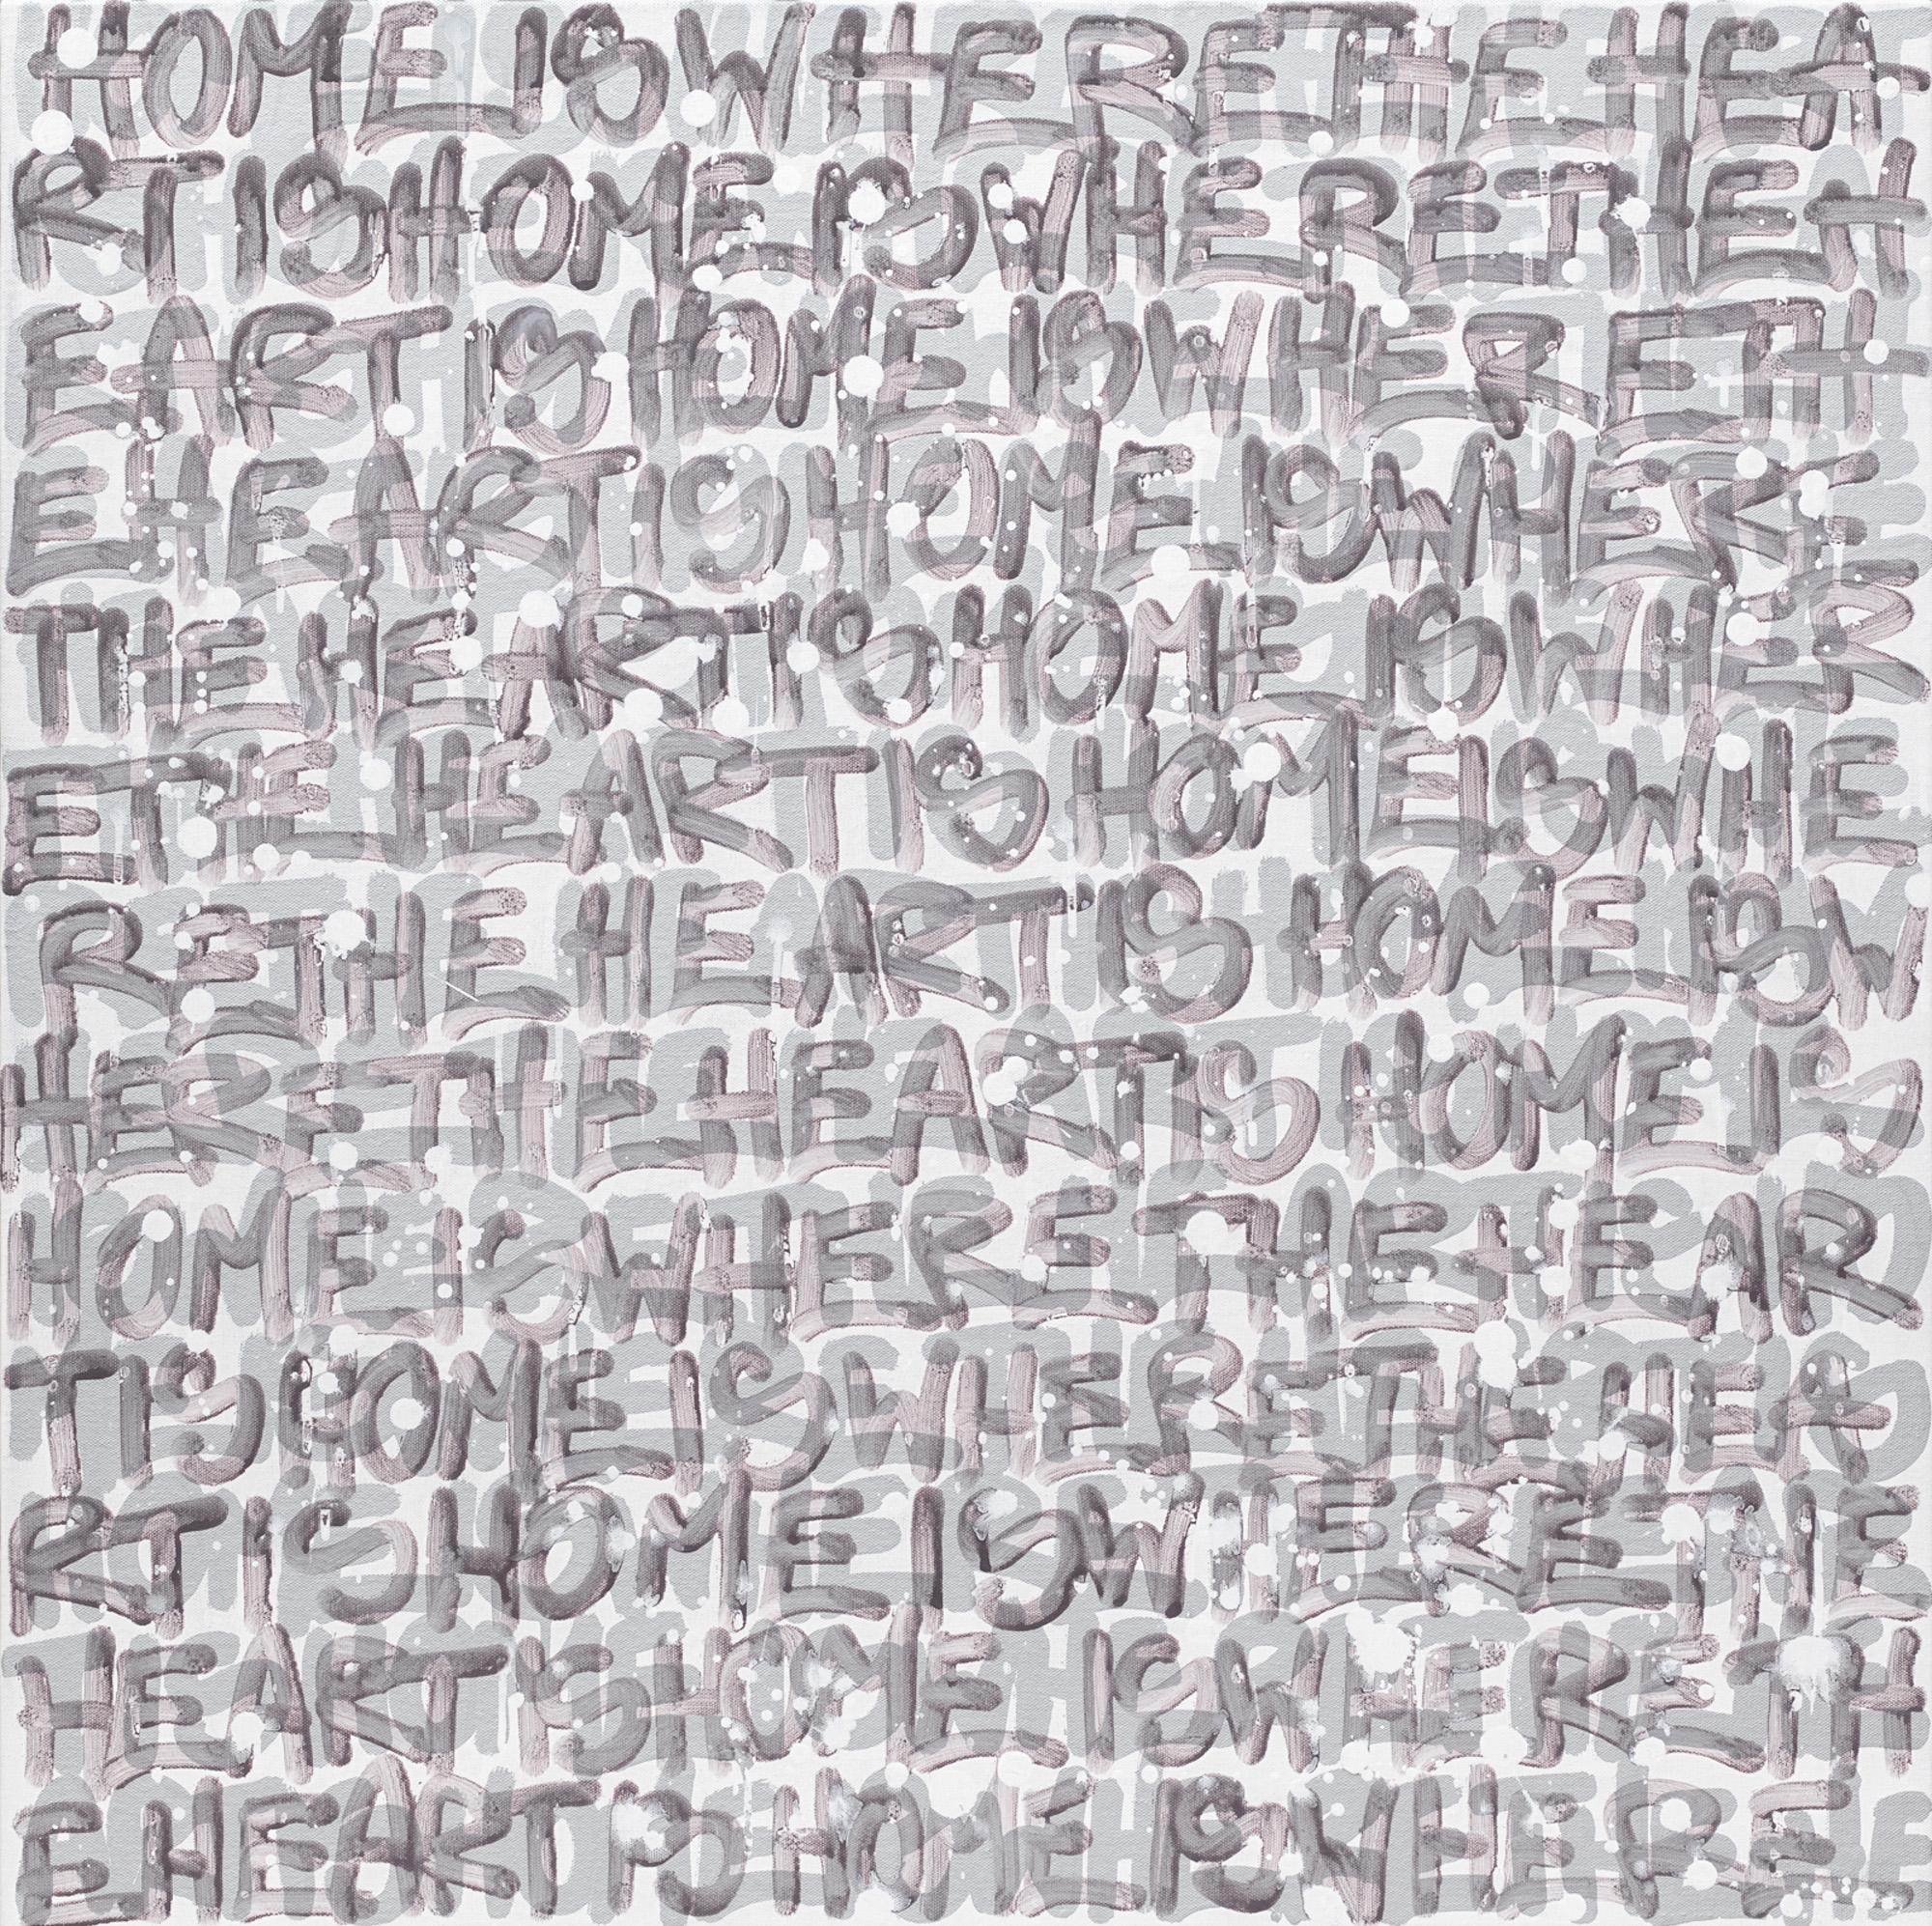 HOME IS WHERE THE HEA
RT IS HOME IS WHERE THE H
EART IS HOME IS WHERE TH
E HEART IS HOME IS WHERE
THE HEART IS HOME IS WHER
E THE HEART IS HOME IS WHE
RE THE HEART IS HOME IS W
HERE THE HEART IS HOME IS
HOME IS WHERE THE HEAR
T IS HOME IS WHERE THE HEA
RT IS HOME IS WHERE THE
HEART IS HOME IS WHERE TH
E HEART IS HOME IS WHERE